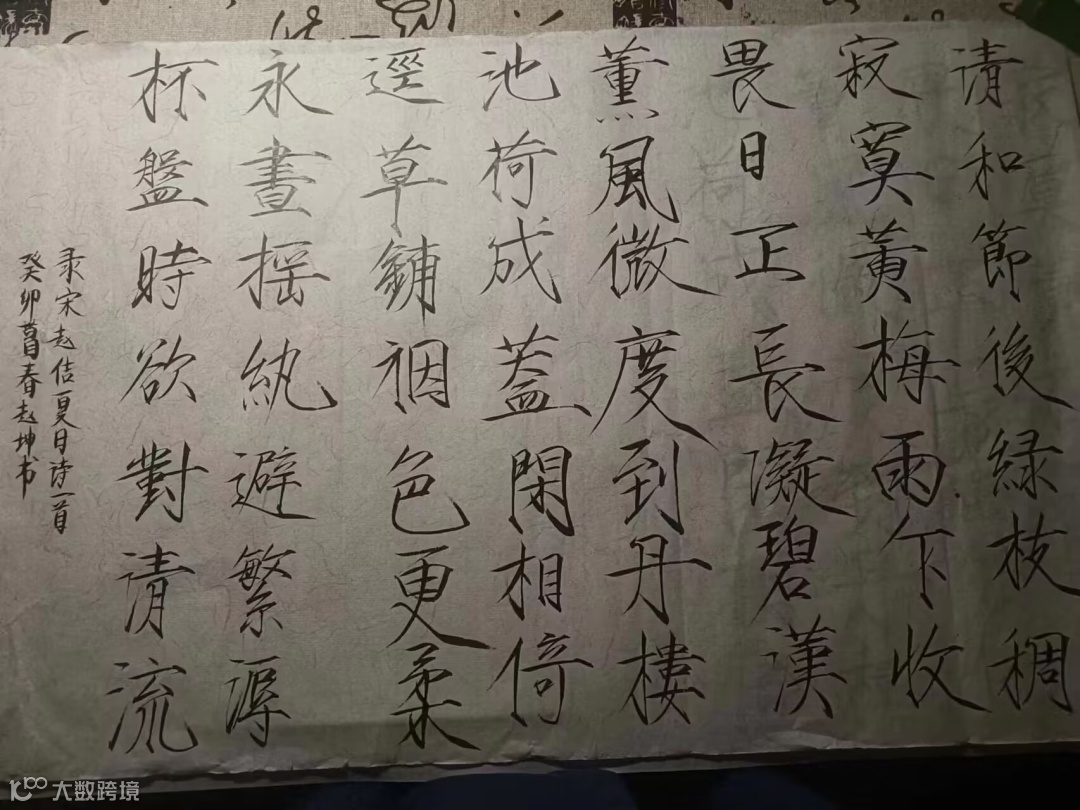 清和節後緑枝稠
寂寞黄梅雨乍收
畏日正長凝碧漢
薰風微度到丹樓
池荷成蓋閑相倚
逕草鋪裀色更柔
永晝摇紈避繁溽
杯盤時欲對清流
录宋赵佶夏日诗一首
癸卯暮春赵坤书
大数跨境